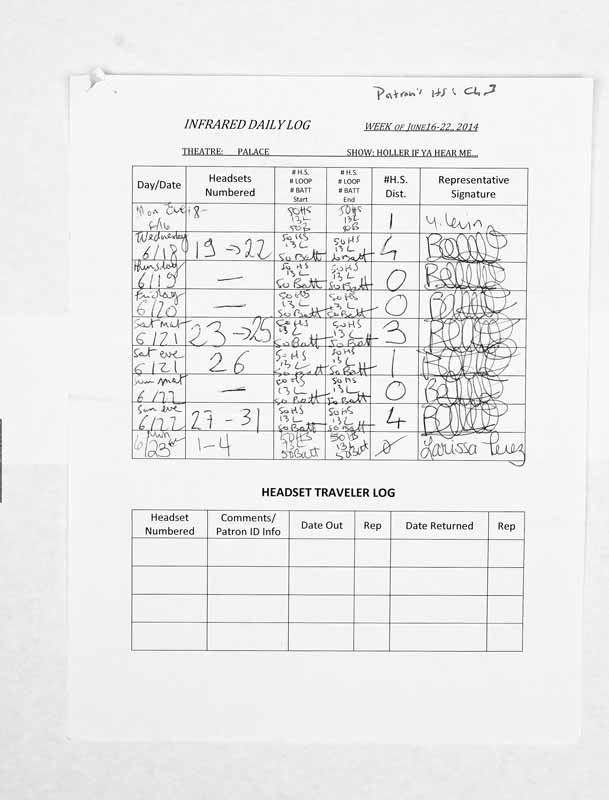 Patron's HS: Ch 3
INFRARED DAILY LOG WEEK OF JUNE16-22, 2014
THEATRE: PALACE SHOW: HOLLER IF YA HEAR ME...
Day/Date Headsets Numbered # H.S. # LOOP # BATT Start # H.S. # LOOP # BATT End #H.S. Dist. Representative Signature
Mon Eve 6/16 18- 50HS 13L 50B 50HS 13L 50B 1 Y. Levin
Wednesday 6/18 19→22 50HS 13L 50Batt 50HS 13L 50Batt 4
Thursday 6/19 — 50HS 13L 50Batt 50HS 13L 50Batt 0
Friday 6/20 — 50HS 13L 50Batt 50HS 13L 50Batt 0
Sat Mat 6/21 23→25 50HS 13L 50Batt 50HS 13L 50Batt 3
Sat eve 6/21 26 50HS 13L 50Batt 50HS 13L 50Batt 1
Sun mat 6/22 — 50HS 13L 50Batt 50HS 13L 50Batt 0
Sun eve 6/22 27-31 50HS 13L 50Batt 50HS 13L 50Batt 4
6/23 1-4 50HS 13L 50Batt 50HS 13L 50Batt Ø Larissa Perez
HEADSET TRAVELER LOG
Headset Numbered Comments/ Patron ID Info Date Out Rep Date Returned Rep